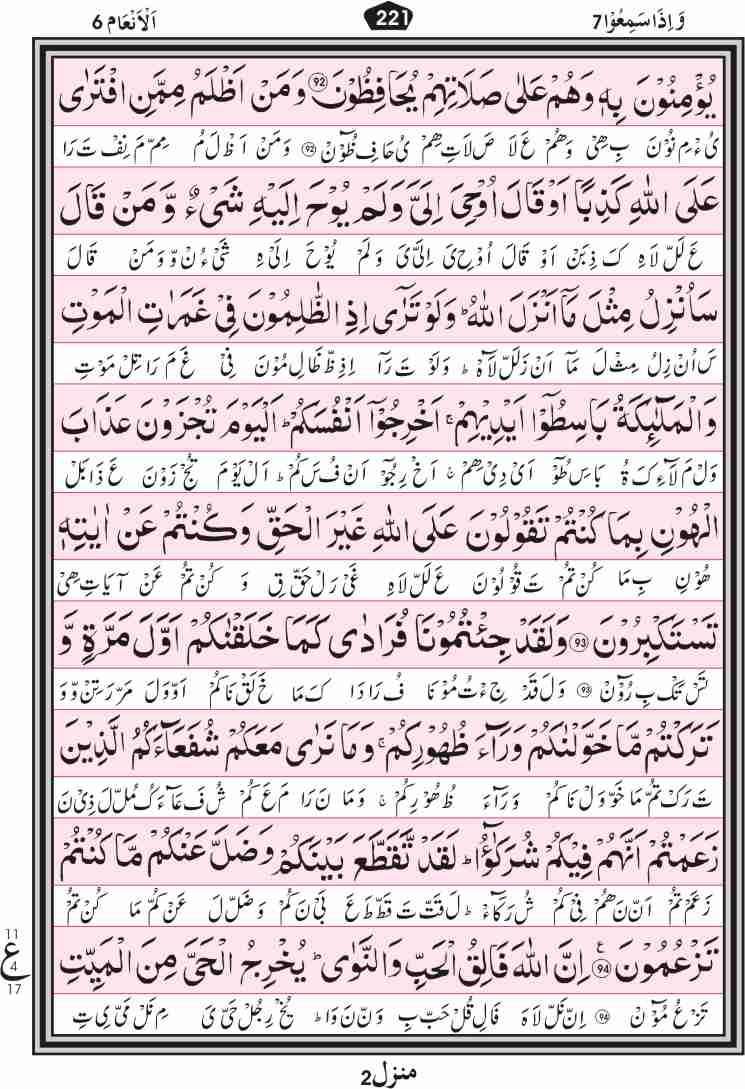 وَاِذَا سَمِعُوْا 7 221 اَلْاَنْعَام 6
يُؤْمِنُوْنَ بِهٖ وَهُمْ عَلٰى صَلَاتِهِمْ يُحَافِظُوْنَ ۝92 وَمَنْ اَظْلَمُ مِمَّنِ افْتَرٰى
يُ ءْ مِ نُوْ نَ بِ هِىْ وَ هُمْ عَ لَا صَ لَا تِ هِمْ يُ حَا فِ ظُوْٓنْ ۝92 وَ مَنْ اَ ظْ لَ مُ مِمْ مَ نِفْ تَ رَا
عَلَى اللّٰهِ كَذِبًا اَوْ قَالَ اُوْحِىَ اِلَىَّ وَلَمْ يُوْحَ اِلَيْهِ شَىْءٌ وَّمَنْ قَالَ
عَ لَلّ لَا هِ كَ ذِ بَنْ اَوْ قَالَ اُوْ حِ ىَ اِلَىْ ىَ وَ لَمْ يُوْحَ اِلَىْ هِ شَىْ ءُنْ وَّ وَ مَنْ قَالَ
سَاُنْزِلُ مِثْلَ مَاۤ اَنْزَلَ اللّٰهُ ؕ وَلَوْ تَرٰٓى اِذِ الظّٰلِمُوْنَ فِىْ غَمَرٰتِ الْمَوْتِ
سَ اُنْ زِلُ مِثْ لَ مَاۤ اَنْ زَلَلّ لَاهْ ؕ وَ لَوْ تَ رَاۤ اِذِظْ ظَالِ مُوْنَ فِىْ غَ مَ رَا تِلْ مَوْتِ
وَالْمَلٰٓئِكَةُ بَاسِطُوْۤا اَيْدِيْهِمْ ۚ اَخْرِجُوْۤا اَنْفُسَكُمْ ؕ اَلْيَوْمَ تُجْزَوْنَ عَذَابَ
وَلْ مَ لَآءِ كَ ةُ بَاسِ طُوْۤ اَىْ دِىْ هِمْ ۚ اَخْ رِجُوْۤ اَنْ فُ سَ كُمْ ؕ اَلْ يَوْمَ تُجْ زَوْنَ عَ ذَا بَلْ
الْهُوْنِ بِمَا كُنْتُمْ تَقُوْلُوْنَ عَلَى اللّٰهِ غَيْرَ الْحَقِّ وَكُنْتُمْ عَنْ اٰيٰتِهٖ
هُوْنِ بِ مَا كُنْ تُمْ تَ قُوْ لُوْنَ عَ لَلّ لَاهِ غَىْ رَلْ حَقْ قِ وَ كُنْ تُمْ عَنْ آيَاتِ هِىْ
تَسْتَكْبِرُوْنَ ۝93 وَلَقَدْ جِئْتُمُوْنَا فُرَادٰى كَمَا خَلَقْنٰكُمْ اَوَّلَ مَرَّةٍ وَّ
تَسْ تَكْ بِ رُوْٓنْ ۝93 وَ لَ قَدْ جِءْ تُ مُوْنَا فُ رَادَا كَ مَا خَ لَقْ نَاكُمْ اَوْ وَلَ مَرْ رَتِنْ وَّ وَ
تَرَكْتُمْ مَّا خَوَّلْنٰكُمْ وَرَآءَ ظُهُوْرِكُمْ ۚ وَمَا نَرٰى مَعَكُمْ شُفَعَآءَكُمُ الَّذِيْنَ
تَ رَكْ تُمْ مَا خَوْ وَلْ نَا كُمْ وَ رَآءَ ظُ هُوْرِكُمْ ۚ وَ مَا نَ رَا مَ عَ كُمْ شُ فَ عَآءَ كُ مُلّ لَ ذِىْ نَ
زَعَمْتُمْ اَنَّهُمْ فِيْكُمْ شُرَكٰٓؤُا ؕ لَقَدْ تَّقَطَّعَ بَيْنَكُمْ وَضَلَّ عَنْكُمْ مَّا كُنْتُمْ
زَ عَمْ تُمْ اَنْ نَ هُمْ فِىْ كُمْ شُ رَ كَآءْ ؕ لَ قَتْ تَ قَطْ طَ عَ بَىْ نَ كُمْ وَ ضَلْ لَ عَنْ كُمْ مَا كُنْ تُمْ
تَزْعُمُوْنَ ۝94 ع اِنَّ اللّٰهَ فَالِقُ الْحَبِّ وَالنَّوٰى ؕ يُخْرِجُ الْحَىَّ مِنَ الْمَيِّتِ
تَزْ عُ مُوْٓنْ ۝94 اِنْ نَلّ لَا هَ فَالِ قُلْ حَبْ بِ وَنْ نَ وَا ؕ يُخْ رِجُلْ حَىْ ىَ مِ نَلْ مَىْ ىِ تِ
11
ع
4
17
منزل2